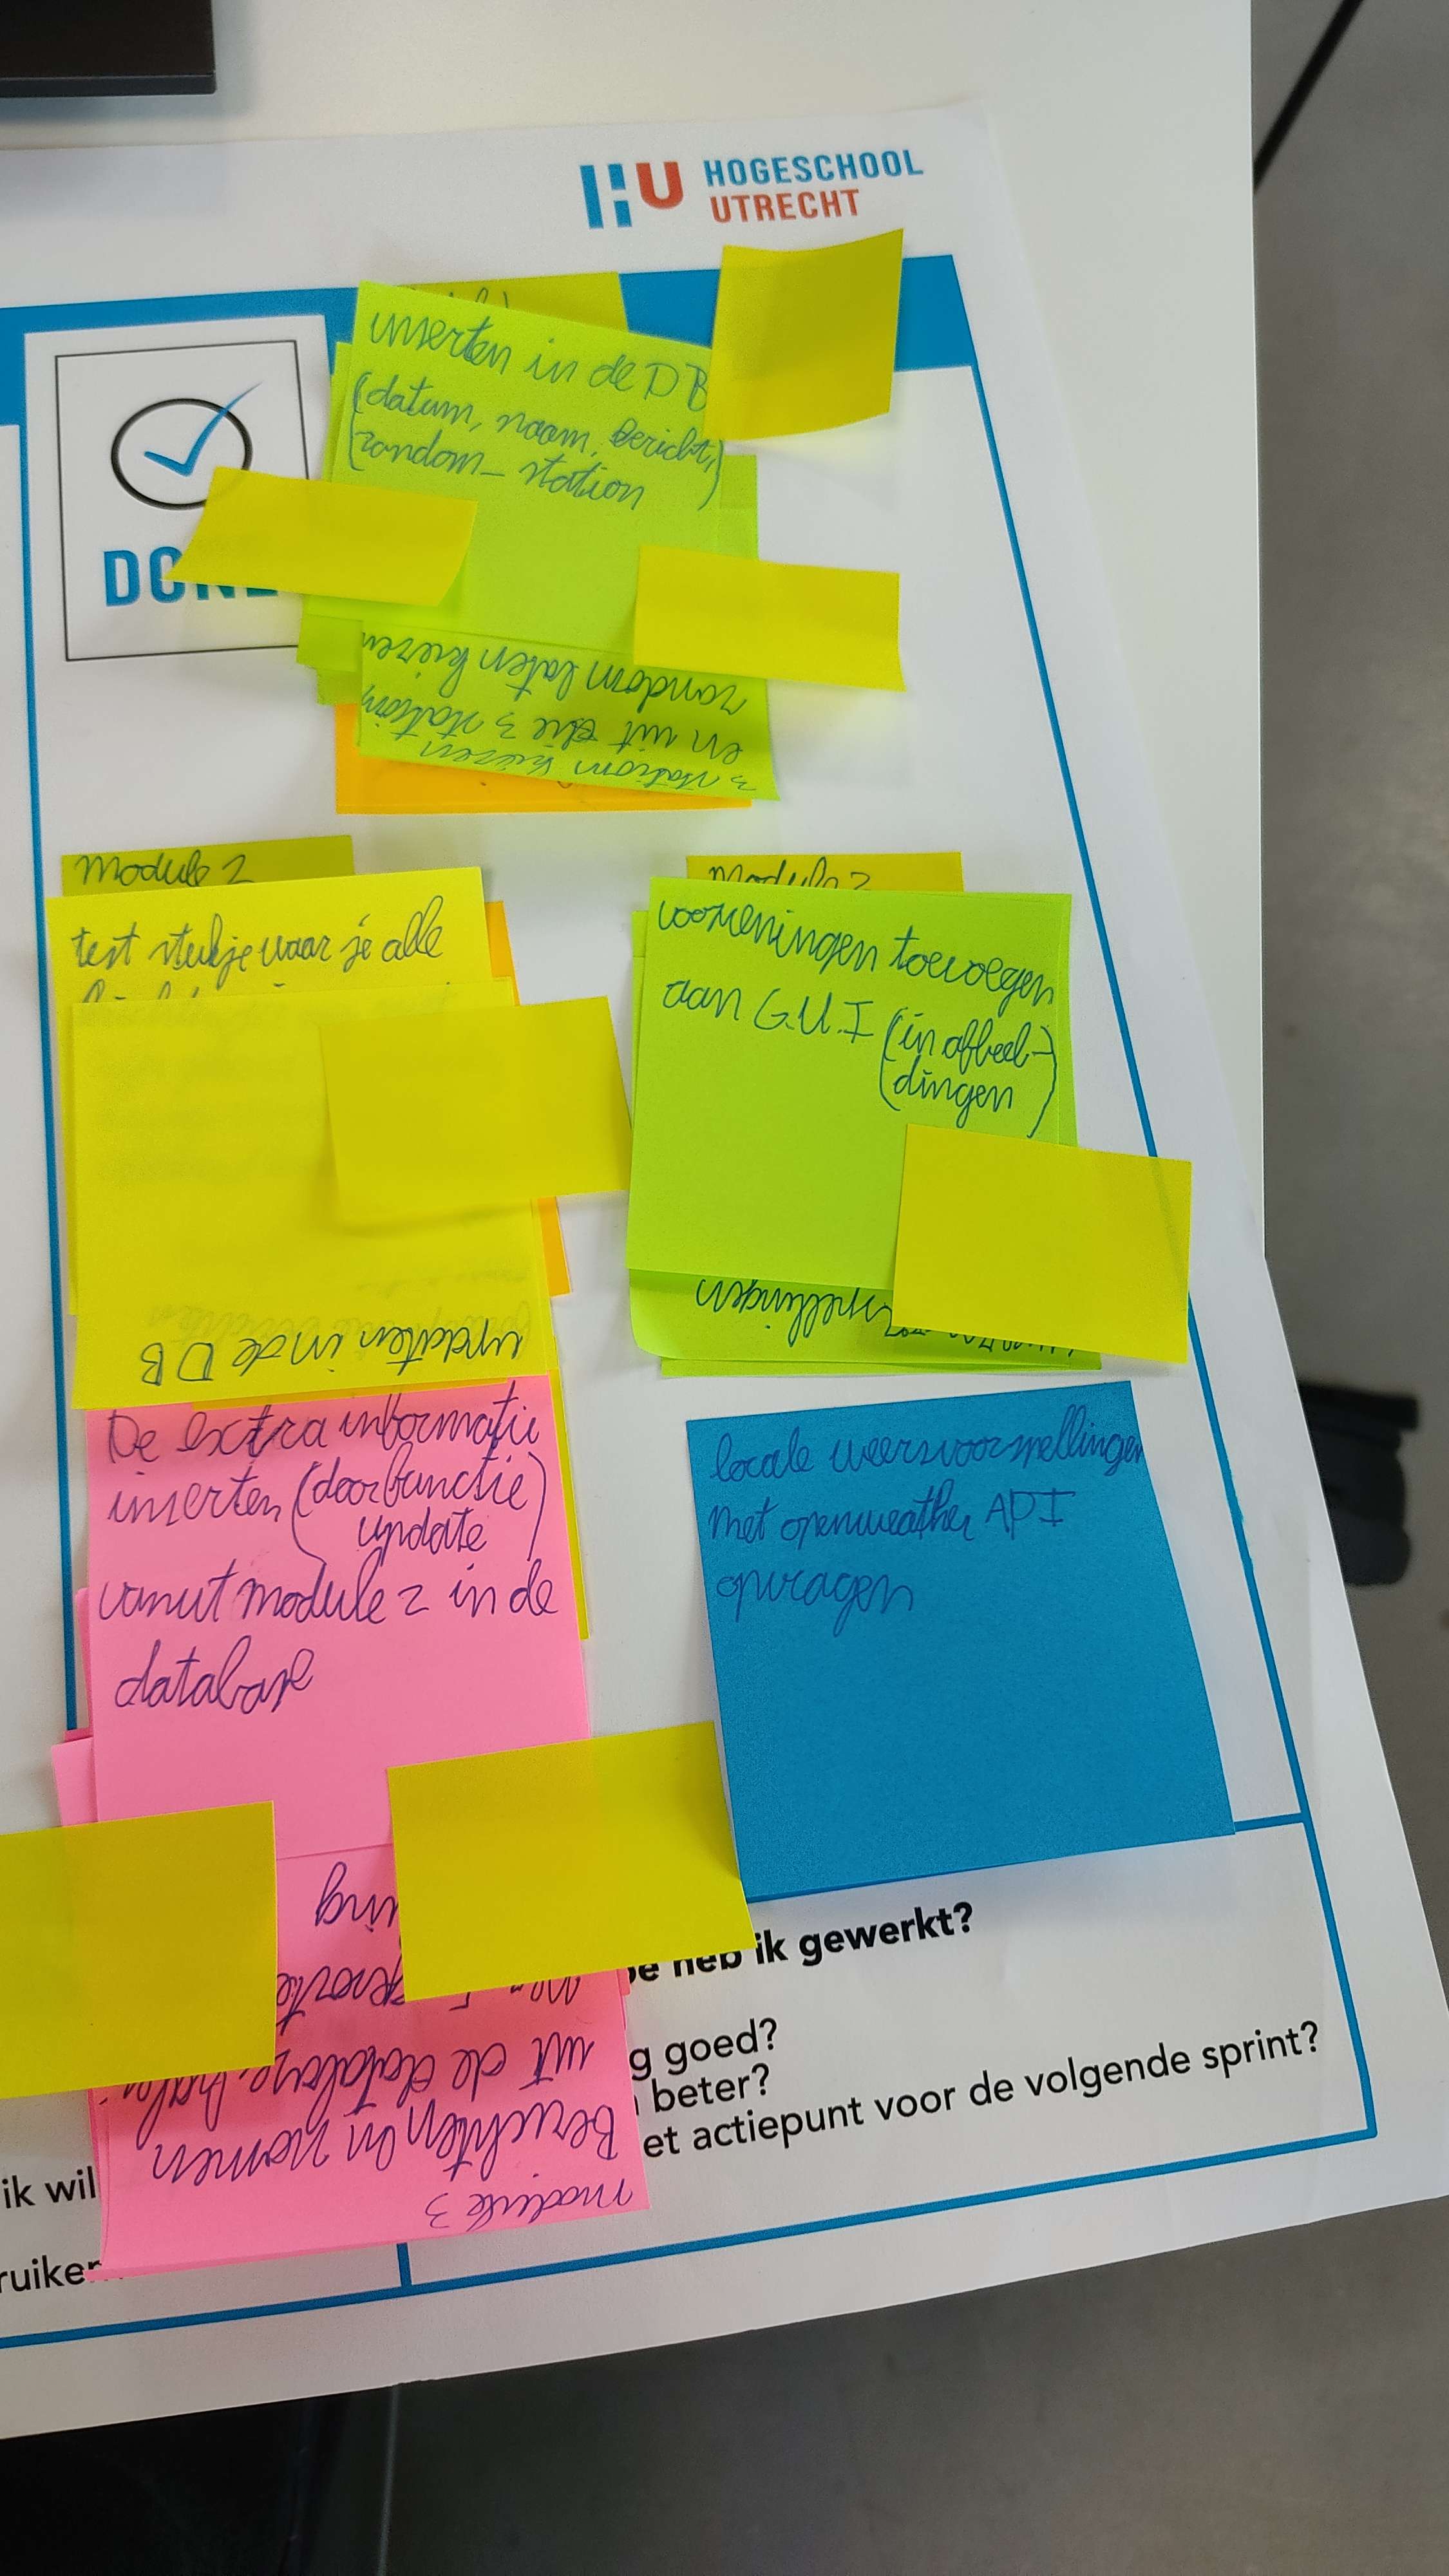 HU HOGESCHOOL
UTRECHT
inserten in de DB
(datum, naam, bericht,
random_station)
DONE
3 station kiezen
en uit die 3 stations
random laten kiezen
Module 2
test stukje waar je alle
updaten in de DB
Module 2
voorzieningen toevoegen
aan G.U.I (in afbeel-
dingen)
De extra informatie
inserten (door functie
update)
vanuit module 2 in de
database
locale weersvoorspellingen
met openweather API
opvragen
module 3
Berichten en namen
uit de database
ik gewerkt?
g goed?
beter?
et actiepunt voor de volgende sprint?
ik wil